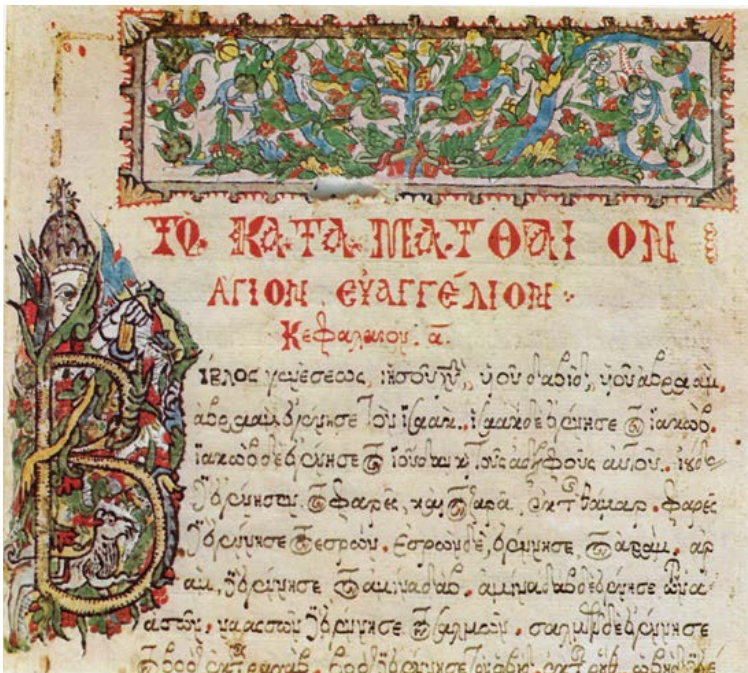 ΤΩ. ΚΑΤΑ. ΜΑΤΘΑΙΟΝ
ΑΓΙΟΝ ΕΥΑΓΓΕΛΙΟΝ:
Κεφαλαιον. α.
ΒΙΒΛΟς γενέσεως, ἰησοῦ χῦ, ὑοῦ δαβιδ, ὑοῦ αβρααμ,
αβρααμ ἐγέννησε Τὸν ἰσαακ. ἰσαακ δὲ ἐγέννησε τὸν ἰακώβ.
ἰακὼβ δὲ ἐγέννησε τὸν ἰούδαν κ Τοὺς αδελφοὺς αυτοῦ. ἰούδας
δὲ ἐγέννησεν τὸν φαρὲς, καὶ τὸν ζαρὰ ἐκ τ θάμαρ. φαρὲς
δὲ ἐγέννησε τὸν ἐσρώμ. Ἐσρώμ δὲ, ἐγέννησε, τὸν αραμ. αρ
αμ, δὲ ἐγέννησε τὸν ἀμιναδάβ. ἀμιναδαβ δὲ ἐγέννησε τὸν να
ασσών, ναασσὼν δὲ ἐγέννησε τὸν σαλμών. σαλμὼν δὲ ἐγέννησε
τὸν βοὸζ ἐκ τ ραχάβ. βοὸζ δὲ ἐγέννησε